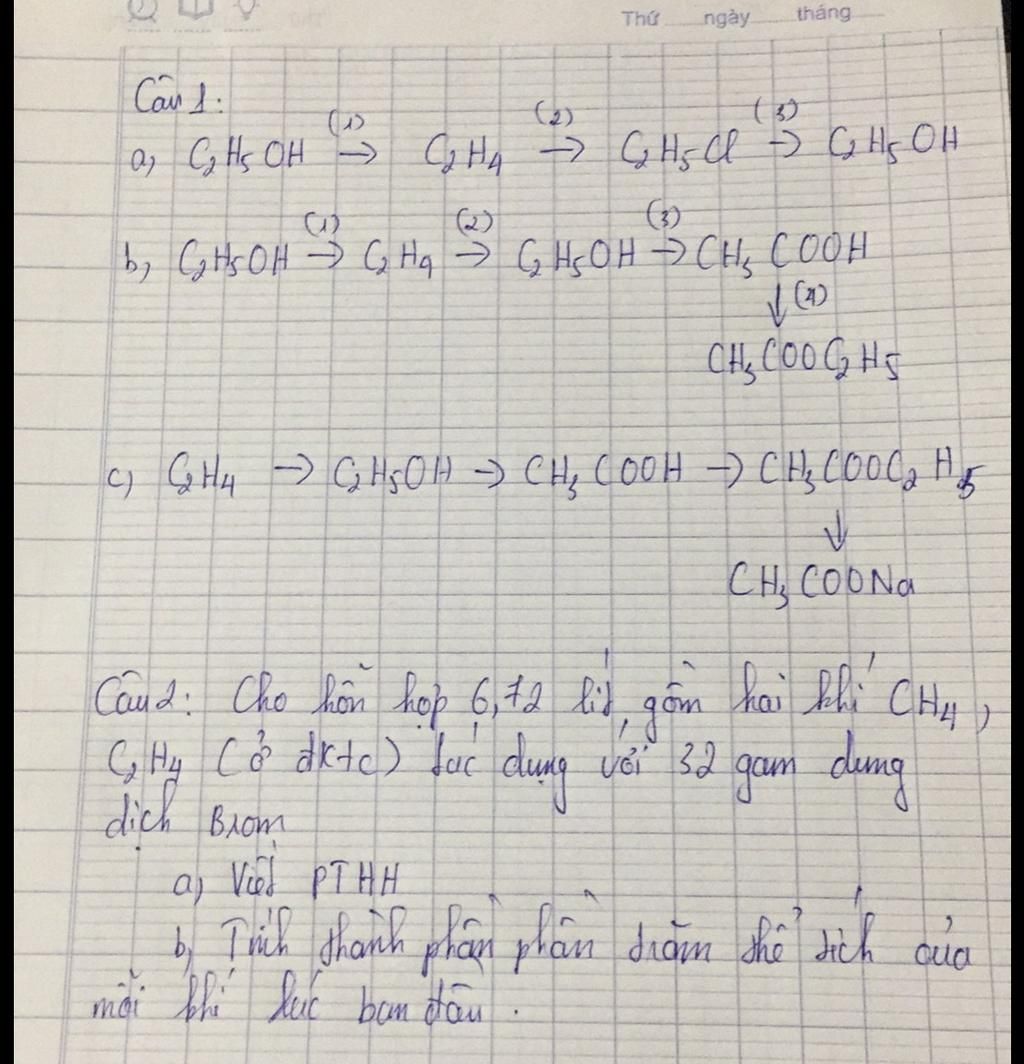 Thứ ngày tháng
Câu 1:
a, C₂H₅OH (1)→ C₂H₄ (2)→ C₂H₅Cl (3)→ C₂H₅OH
b, C₂H₅OH (1)→ C₂H₄ (2)→ C₂H₅OH (3)→ CH₃COOH
↓(4)
CH₃COOC₂H₅
c) C₂H₄ → C₂H₅OH → CH₃COOH → CH₃COOC₂H₅
↓
CH₃COONa
Câu 2: Cho hỗn hợp 6,72 lít, gồm hai khí CH₄,
C₂H₄ (ở đktc) tác dụng với 32 gam dung
dịch Brom
a, Viết PTHH
b, Tính thành phần phần trăm thể tích của
mỗi khí lúc ban đầu.